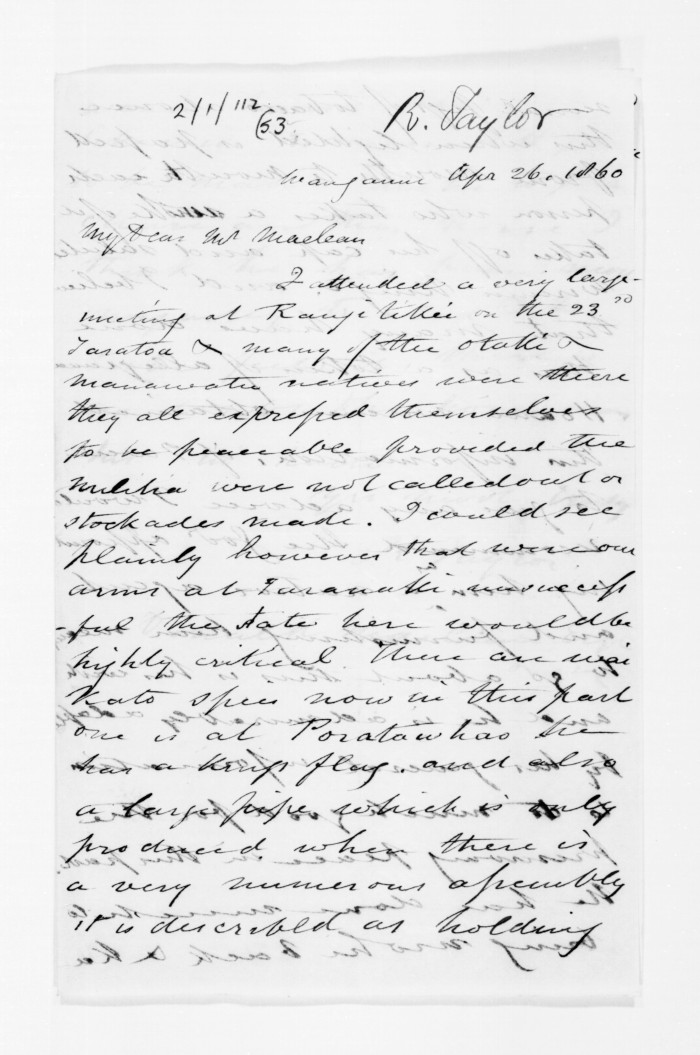 2/1/112
(53
R. Taylor
Wanganui Apr 26. 1860
My Dear Mr Maclean
I attended a very large
meeting at Rangitikei on the 23rd
Taratoa & many of the Otaki &
Manawatu natives were there
they all expressed themselves
to be peaceable provided the
militia were not called out or
stockades made. I could see
plainly however that were our
arms at Taranaki unsuccess
-ful the state here would be
highly critical. There are wai
kato spies now in this part
one is at Poratawhao he
has a kings flag. and also
a large pipe which is only
produced when there is
a very numerous assembly
it is described as holding